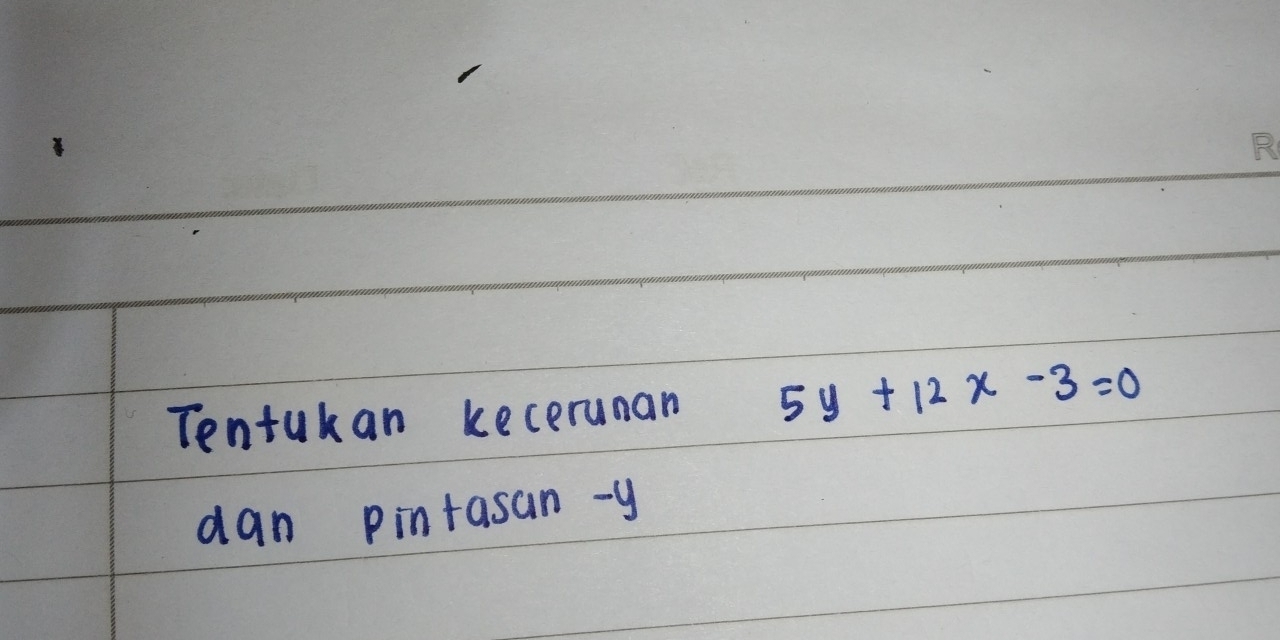 Tentukan kecerunan 5y + 12x - 3 = 0
dan pintasan -y